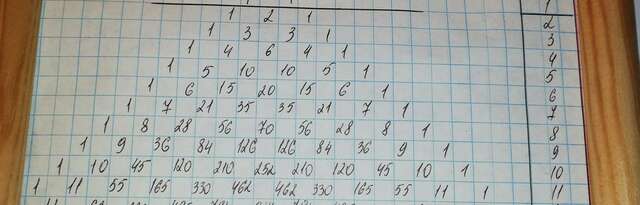 1
1 2 1 2
1 3 3 1 3
1 4 6 4 1 4
1 5 10 10 5 1 5
1 6 15 20 15 6 1 6
1 7 21 35 35 21 7 1 7
1 8 28 56 70 56 28 8 1 8
1 9 36 84 126 126 84 36 9 1 9
1 10 45 120 210 252 210 120 45 10 1 10
1 11 55 165 330 462 462 330 165 55 11 1 11